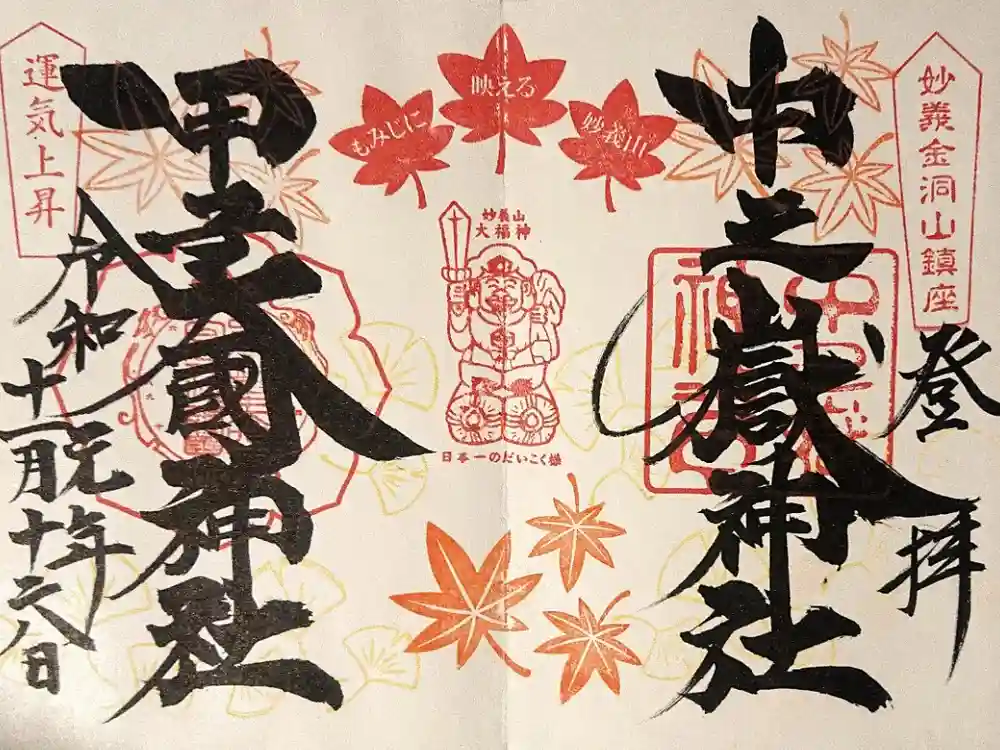 妙義金洞山鎮座
登拝
中之嶽神社
もみじに
映える
妙義山
妙義山
大福神
日本一のだいこく様
甲子大國神社
運気・上昇
令和元年
十一月十六日